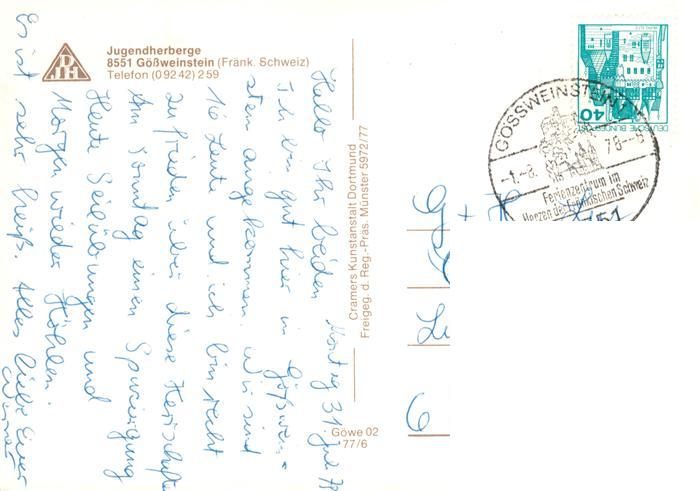 Jugendherberge
8551 Gößweinstein (Fränk. Schweiz)
Telefon (0 92 42) 2 59
DJH
Montag 31. Juli 78
Hallo Ihr beiden
Ich bin gut hier in Gößwein-
stein angekommen. Wir sind
Leute und ich bin recht
zufrieden über diese
Am Sonntag einen
Heute Seilübungen und
Morgen wieder Höhlen.
Es ist sehr heiß. Alles Liebe Euer
Werner
Cramers Kunstanstalt Dortmund
Freigeg. d. Reg.-Präs. Münster 5972/77
Göwe 02
77/6
DEUTSCHE BUNDESPOST
40
GOSSWEINSTEIN
-1.-8. 78.--8
Ferienzentrum im
Herzen der Fränkischen Schweiz
G + K
6